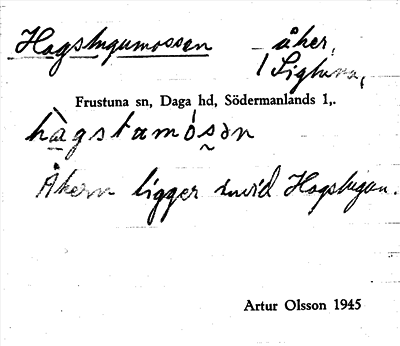 Hagstugumossen åker,
/ Sigtuna,
Frustuna sn, Daga hd, Södermanlands l,.
hagstamósən
Åkern ligger invid Hagstugan.
Artur Olsson 1945